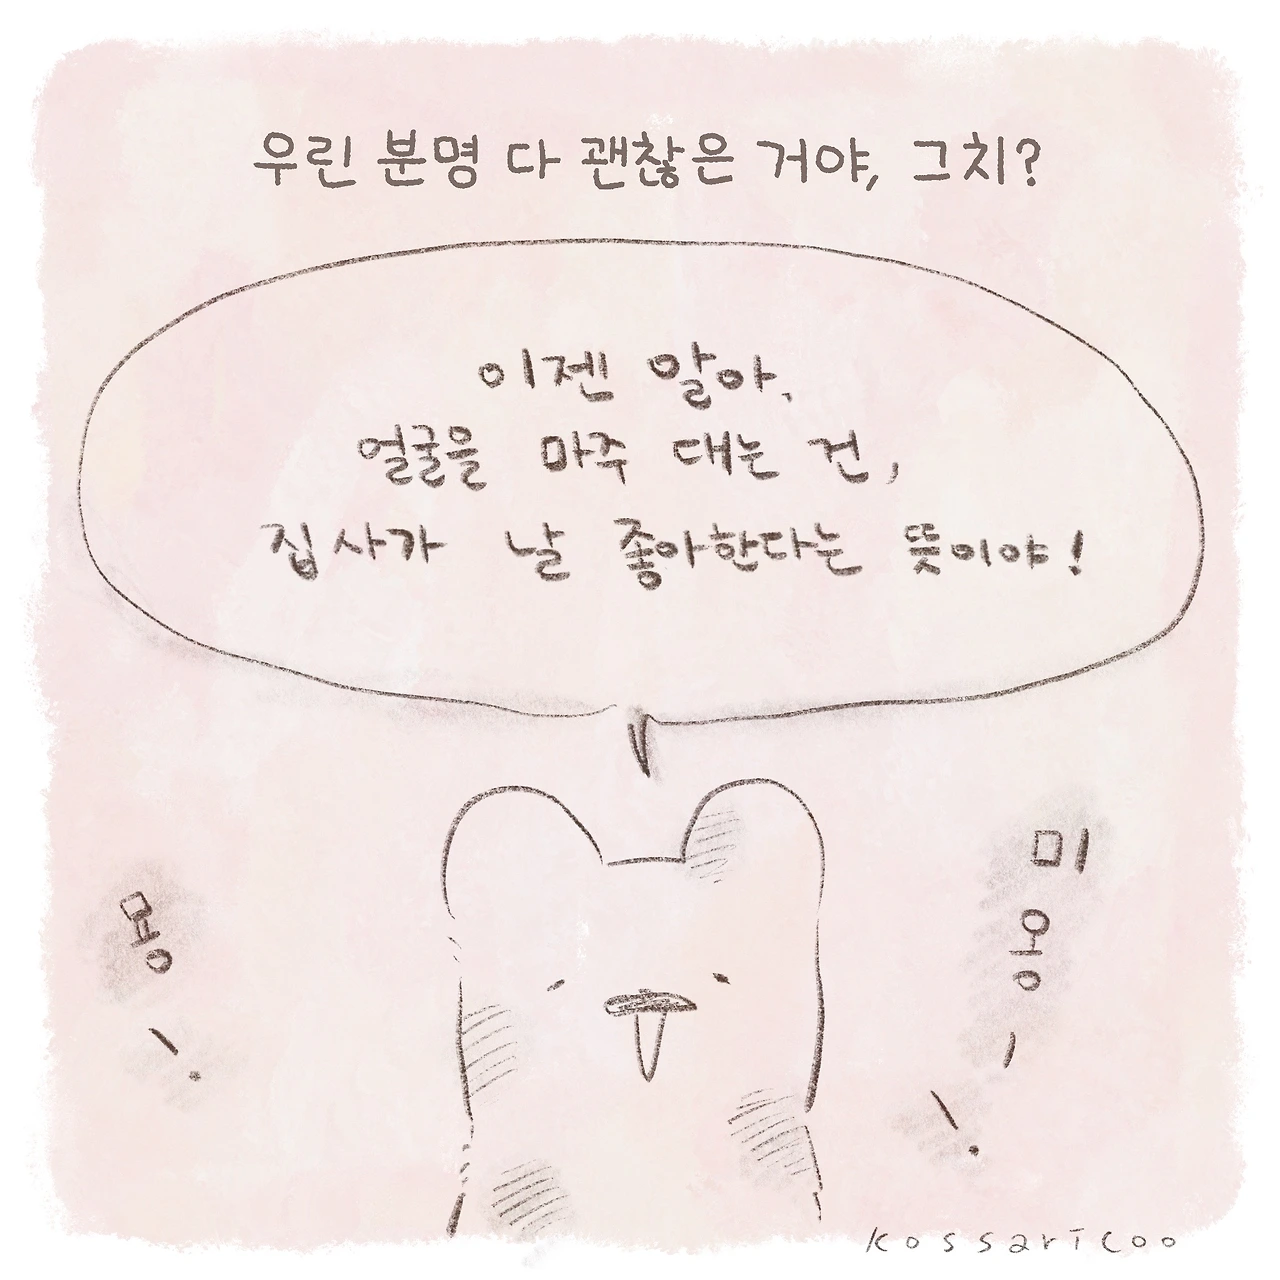 우린 분명 다 괜찮은 거야, 그치?
이젠 알아.
얼굴을 마주 대는 건,
집사가 날 좋아한다는 뜻이야!
몽!
미옹-!
kossaricoo